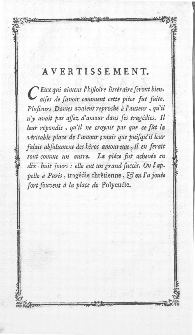 AVERTISSEMENT.
Ceux qui aiment l'histoire littéraire seront bien-
aises de savoir comment cette piéce fut faite.
Plusieurs Dames avaient reproché à l'auteur, qu'il
n'y avait pas assez d'amour dans ses tragédies. Il
leur répondit, qu'il ne croyait pas que ce fût la
véritable place de l'amour ; mais que puisqu'il leur
falait absolument des héros amoureux, il en ferait
tout comme un autre. La piéce fut achevée en
dix-huit jours : elle eut un grand succès. On l'ap-
pelle à Paris, tragédie chrétienne, & on l'a jouée
fort souvent à la place de Polyeucte.